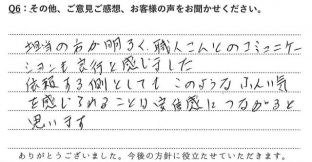 Q6：その他、ご意見ご感想、お客様の声をお聞かせください。
担当の方が明るく、職人さんとのコミュニケー
ションも良好と感じました
依頼する側としても このような ふんい気
を感じられることは安心感につながると
思います
ありがとうございました。今後の方針に役立たせていただきます。